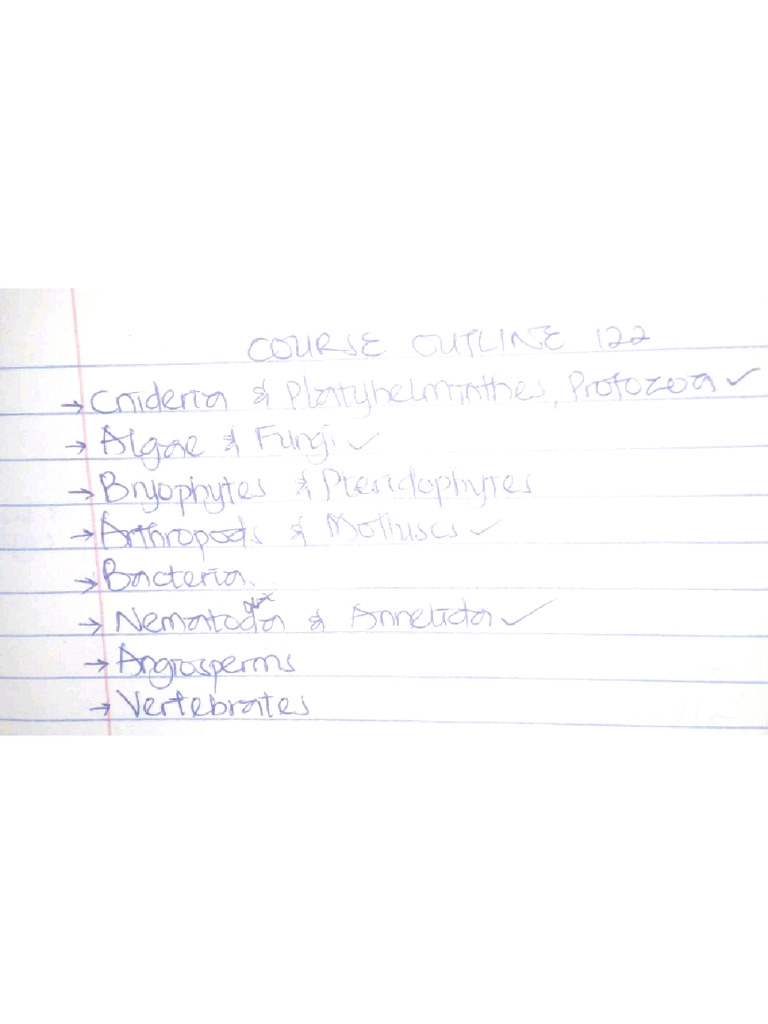 COURSE OUTLINE 122
→ Cnideria & Platyhelminthes, Protozoa ✓
→ Algae & Fungi ✓
→ Bryophytes & Pteridophytes
→ Arthropods & Molluscs ✓
→ Bacteria.
→ Nematoda & Annelida ✓
→ Angiosperms
→ Vertebrates